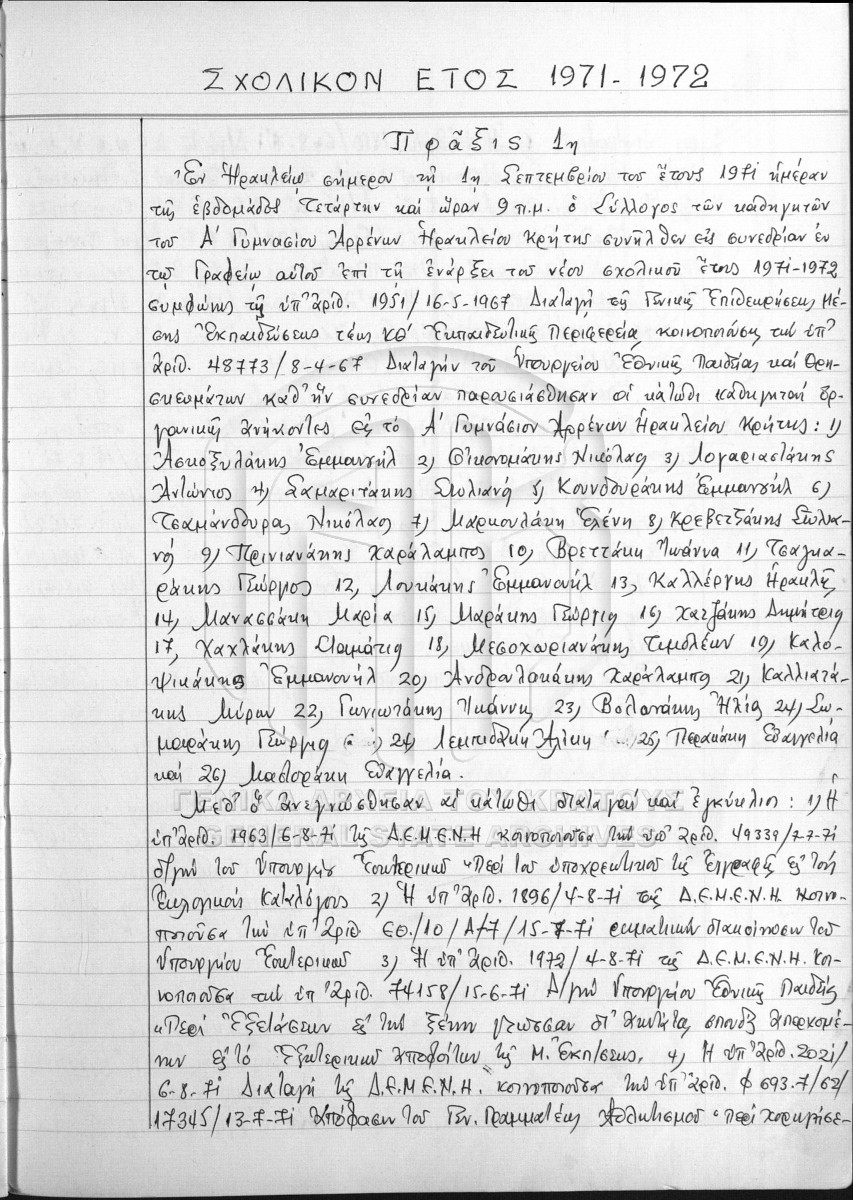 ΣΧΟΛΙΚΟΝ ΕΤΟΣ 1971-1972
Πρᾶξις 1η
Ἐν Ἡρακλείῳ σήμερον τῇ 1η Σεπτεμβρίου τοῦ ἔτους 1971 ἡμέραν
τῆς ἑβδομάδος Τετάρτην καὶ ὥραν 9 π.μ. ὁ Σύλλογος τῶν καθηγητῶν
τοῦ Α' Γυμνασίου Ἀρρένων Ἡρακλείου Κρήτης συνῆλθεν εἰς συνεδρίαν ἐν
τῷ Γραφείῳ αὐτοῦ ἐπὶ τῇ ἐνάρξει τοῦ νέου σχολικοῦ ἔτους 1971-1972
συμφώνως τῇ ὑπ' ἀριθ. 1951/16-5-1967 Διαταγῇ τῆς Γενικῆς Ἐπιθεωρήσεως Μέ-
σης Ἐκπαιδεύσεως τέως Κθ' Ἐκπαιδευτικῆς Περιφερείας κοινοποιούσης τὴν ὑπ'
ἀριθ. 48773/8-4-67 Διαταγὴν τοῦ Ὑπουργείου Ἐθνικῆς Παιδείας καὶ Θρη-
σκευμάτων καθ' ἣν συνεδρίαν παρουσιάσθησαν οἱ κάτωθι καθηγηταὶ ὀρ-
γανικῶς ἀνήκοντες εἰς τὸ Α' Γυμνάσιον Ἀρρένων Ἡρακλείου Κρήτης: 1)
Ἀσκοξυλάκης Ἐμμανουήλ 2) Οἰκονομάκης Νικόλαος 3) Λογαριαστάκης
Ἀντώνιος 4) Σαμαριτάκης Στυλιανός 5) Κουνδουράκης Ἐμμανουήλ 6)
Τσαμάνδουρας Νικόλαος 7) Μαρκουλάκη Ἑλένη 8) Κρεβετζάκης Στυλια-
νός 9) Πρινιανάκης Χαράλαμπος 10) Βρεττάκη Ἰωάννα 11) Τσαγκα-
ράκης Γεώργιος 12) Λουκάκης Ἐμμανουήλ 13) Καλλέργης Ἡρακλῆς
14) Μανασσάκη Μαρία 15) Μαράκης Γεώργιος 16) Χατζάκης Δημήτριος
17) Χαχλάκης Σταμάτιος 18) Μεσοχωριανάκης Τιμολέων 19) Καλο-
ψικάκης Ἐμμανουήλ 20) Ἀνδρουλακάκης Χαράλαμπος 21) Καλλιατά-
κης Μύρων 22) Γωνιωτάκης Ἰωάννης 23) Βολανάκης Ἠλίας 24) Σω-
μαράκης Γεώργιος 24) Λεμπιδάκη Ἀλίκη 25) Περακάκη Εὐαγγελία
καὶ 26) Μαστοράκη Εὐαγγελία.
ΓΕΝΙΚΑ ΑΡΧΕΙΑ ΤΟΥ ΚΡΑΤΟΥΣ
Μεθ' ὃ ἀνεγνώσθησαν αἱ κάτωθι διαταγαὶ καὶ ἐγκύκλιοι: 1) Ἡ
GENERAL STATE ARCHIVES
ὑπ' ἀριθ. 1963/6-8-71 τῆς Δ.Ε.Μ.Ε.Ν.Η κοινοποιοῦσα τὴν ὑπ' ἀριθ. 49339/7-7-71
δ/γὴν τοῦ Ὑπουργείου Ἐσωτερικῶν «Περὶ τοῦ ὑποχρεωτικοῦ τῆς Ἐγγραφῆς εἰς τοὺς
Ἐκλογικοὺς Καταλόγους 2) Ἡ ὑπ' ἀριθ. 1896/4-8-71 τῆς Δ.Ε.Μ.Ε.Ν.Η. κοινο-
ποιοῦσα τὴν ὑπ' ἀριθ. ΕΘ./10/Α/7/15-7-71 διακοίνωσιν τοῦ
Ὑπουργείου Ἐσωτερικῶν 3) Ἡ ὑπ' ἀριθ. 1972/4-8-71 τῆς Δ.Ε.Μ.Ε.Ν.Η. κοι-
νοποιοῦσα τὴν ὑπ' ἀριθ. 74158/15-6-71 Δ/γὴν Ὑπουργείου Ἐθνικῆς Παιδείας
«Περὶ Ἐξετάσεων εἰς τὴν ξένην γλῶσσαν δι' σπουδὰς ἀπερχομέ-
νων εἰς τὸ Ἐξωτερικὸν ἀποφοίτων τῆς Μ. Ἐκπ/σεως. 4) Ἡ ὑπ' ἀριθ. 2021/
6-8-71 Διαταγὴ τῆς Δ.Ε.Μ.Ε.Ν.Η. κοινοποιοῦσα τὴν ὑπ' ἀριθ. φ 693.7/62/
17345/13-7-71 Ἀπόφασιν τοῦ Γεν. Γραμματέως Ἀθλητισμοῦ «Περὶ χορηγήσε-